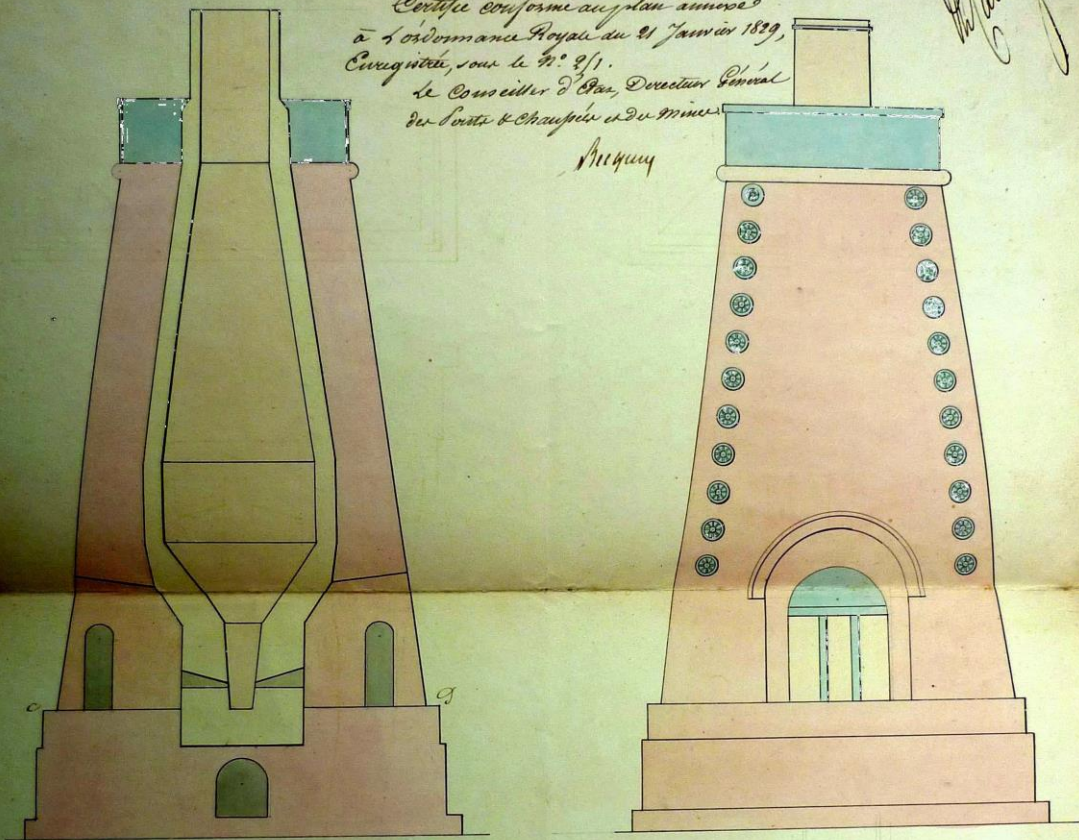 Certifié conforme au plan annexé
à L'ordonnance Royale du 21 Janvier 1829,
Enregistrée, sous le N.º 2/1.
Le Conseiller d'État, Directeur Général
des Ponts & Chaussées et des Mines
Becquey
C
D